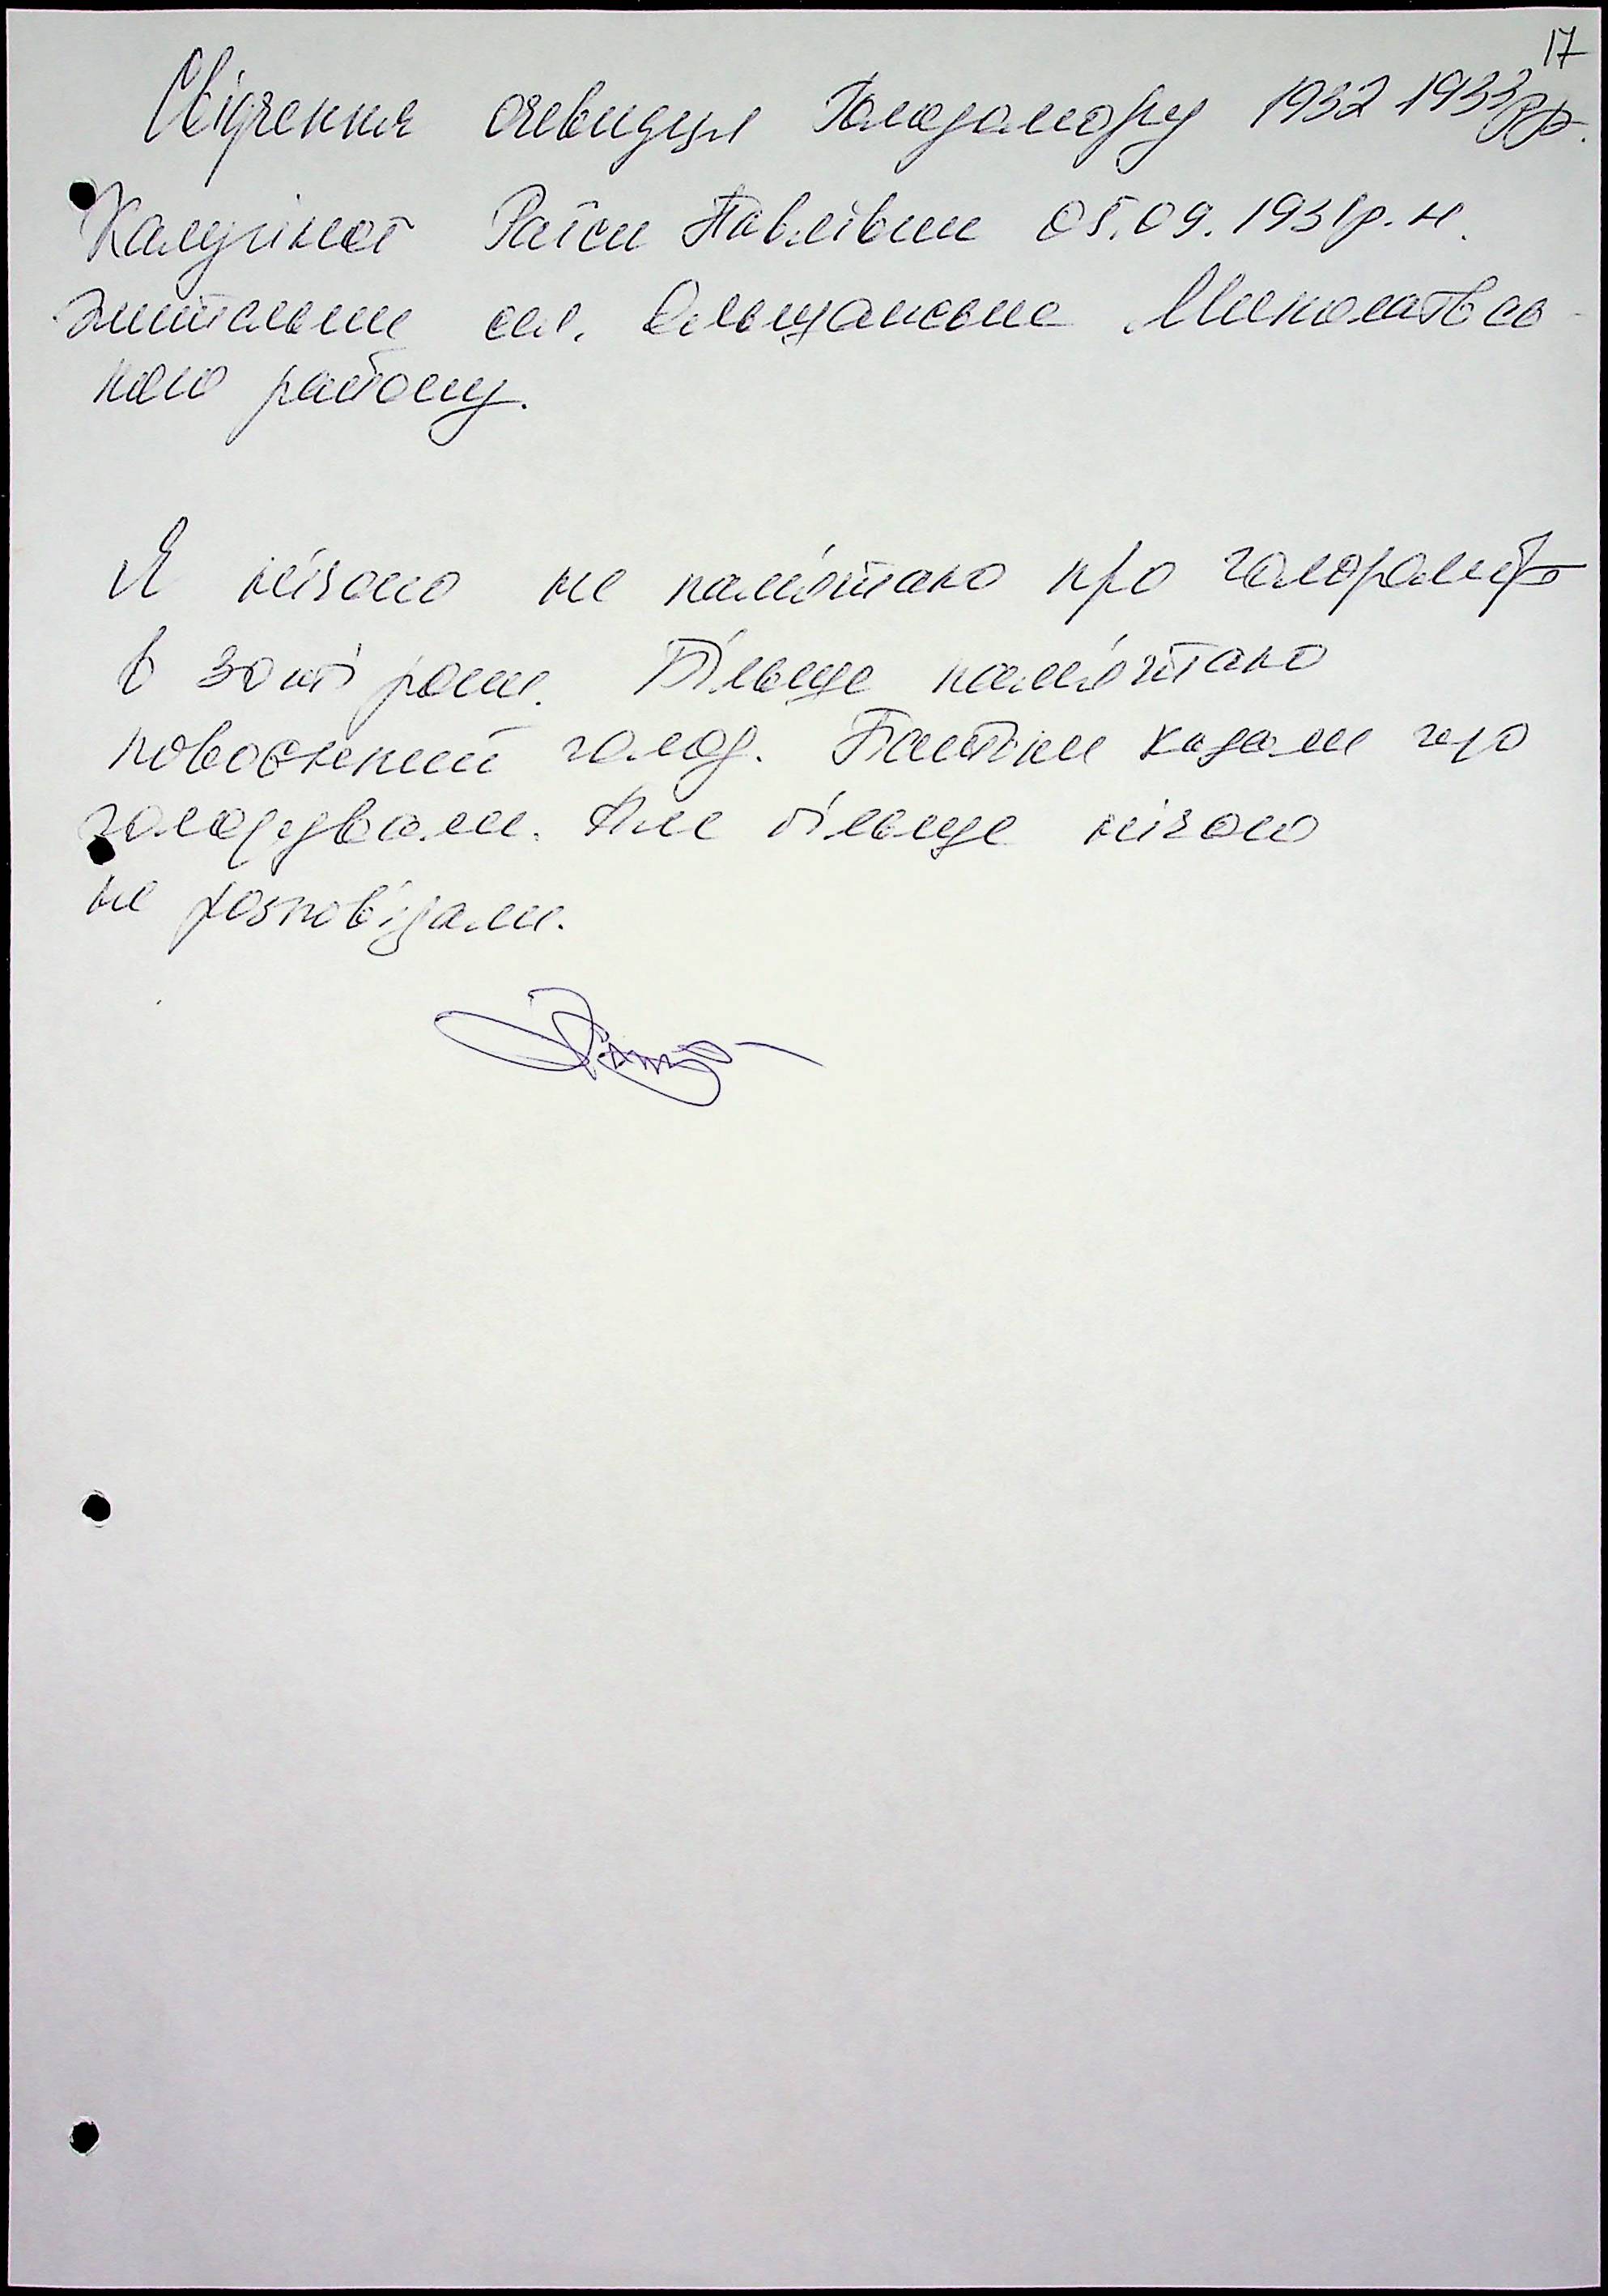 17
Свідчення очевидця Голодомору 1932 1933рр.
Раїси Павлівни 05.09.1931р.н.
жительки сел. Ольшанське Миколаївсь-
кого району.
Я нічого не памʼятаю про голодомор
в 30ті роки. Більше памʼятаю
повоєнний голод. Батьки казали що
голодували. Але більше нічого
не розповідали.